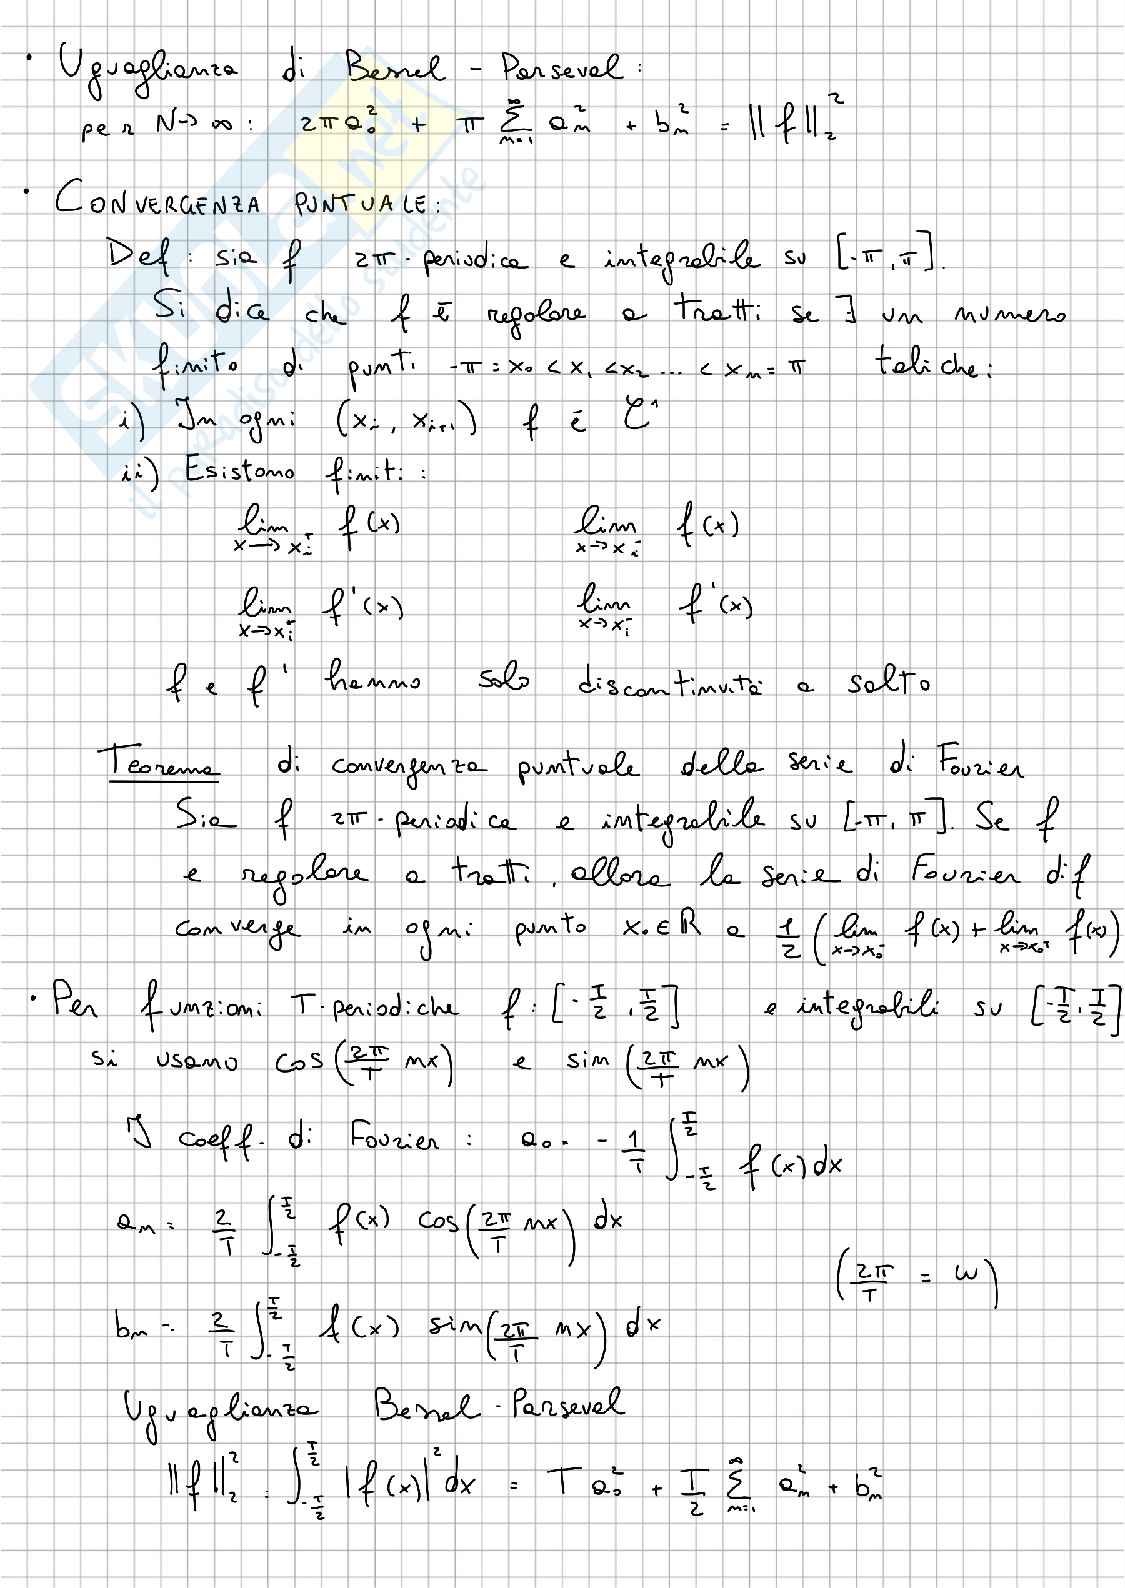 • Uguaglianza di Bessel - Parseval :
per N→∞ : 2πa₀² + π ∑ₙ₌₁^∞ aₙ² + bₙ² = ||f||₂²
• CONVERGENZA PUNTUALE:
Def : sia f 2π-periodica e integrabile su [-π,π].
Si dice che f è regolare a tratti se ∃ un numero
finito di punti -π = x₀ < x₁ < x₂ ... < xₙ = π tali che:
i) In ogni (xᵢ, xᵢ₊₁) f è C¹
ii) Esistono finiti :
lim x→xᵢ⁺ f(x) lim x→xᵢ⁻ f(x)
lim x→xᵢ⁺ f'(x) lim x→xᵢ⁻ f'(x)
f e f' hanno solo discontinuità a salto
Teorema di convergenza puntuale della serie di Fourier
Sia f 2π-periodica e integrabile su [-π, π]. Se f
e regolare a tratti, allora la serie di Fourier di f
converge in ogni punto x₀∈ℝ a 1/2 (lim x→x₀⁻ f(x) + lim x→x₀⁺ f(x))
• Per funzioni T-periodiche f: [-T/2, T/2] e integrabili su [-T/2, T/2]
si usano cos(2π/T nx) e sin(2π/T nx)
I coeff. di Fourier : a₀ = 1/T ∫_{-T/2}^{T/2} f(x) dx
aₙ = 2/T ∫_{-T/2}^{T/2} f(x) cos(2π/T nx) dx
(2π/T = ω)
bₙ = 2/T ∫_{-T/2}^{T/2} f(x) sin(2π/T nx) dx
Uguaglianza Bessel - Parseval
||f||₂² = ∫_{-T/2}^{T/2} |f(x)|² dx = T a₀² + T/2 ∑ₙ₌₁^∞ aₙ² + bₙ²
skuola.net
il paradiso dello studente